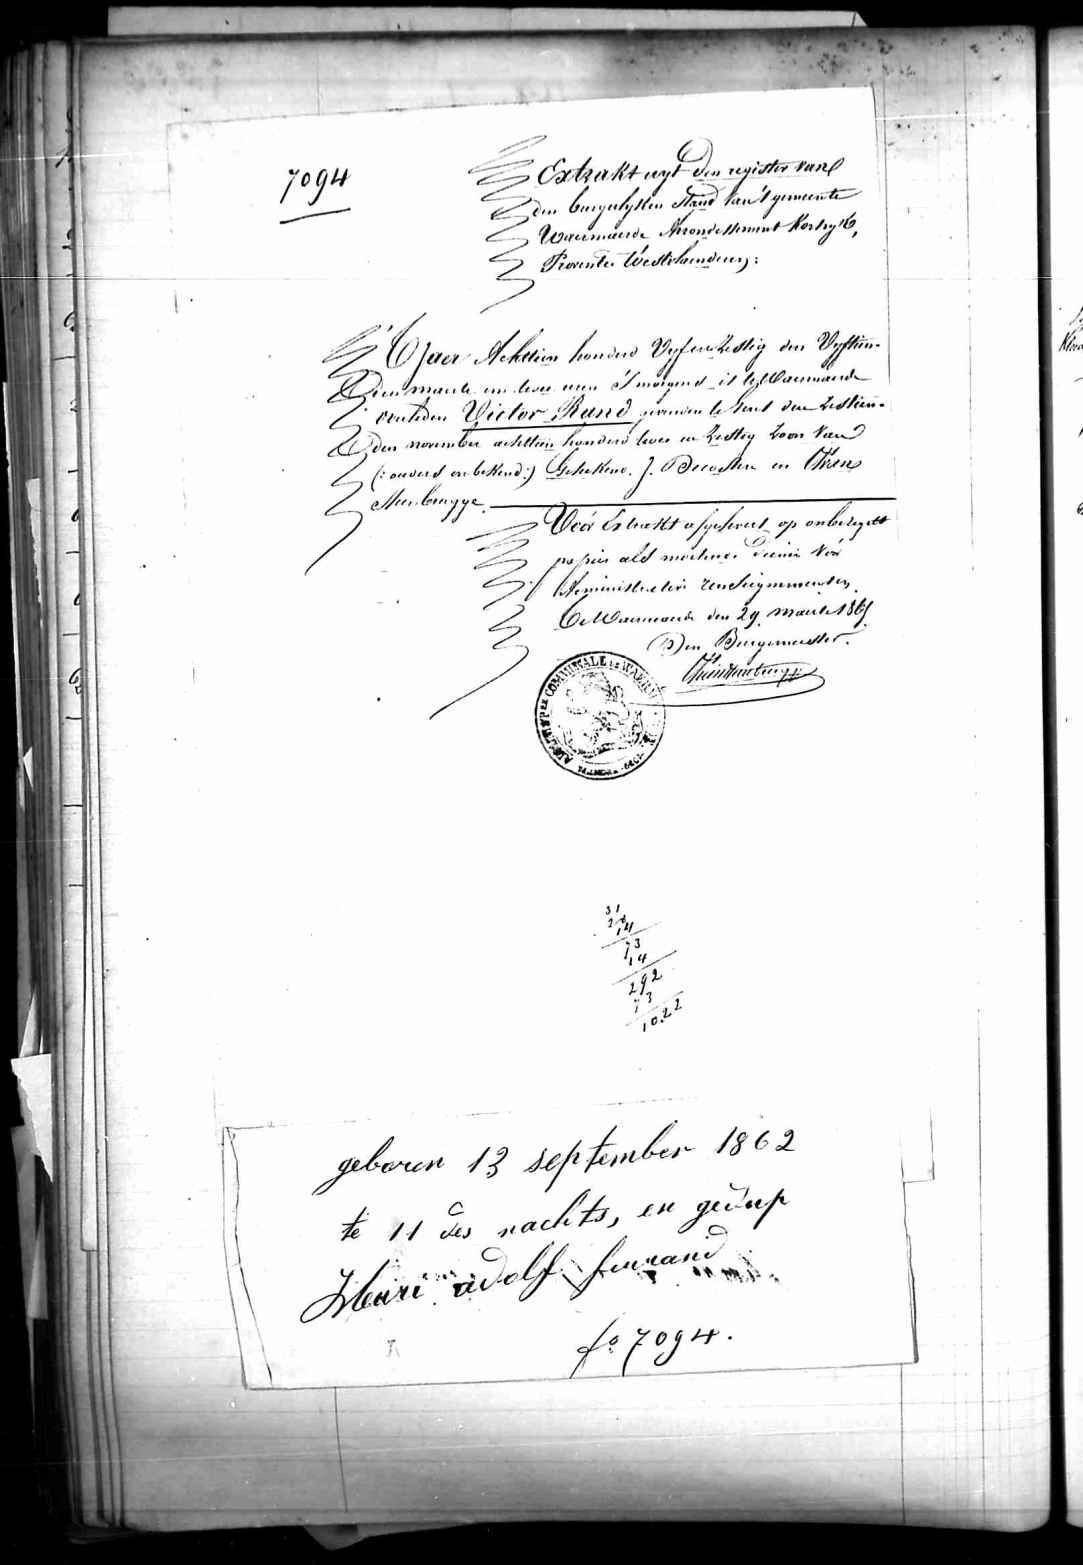 7094
Extrakt uyt den register van
den burgerlyken Stand van 't gemeente
Waermaerde Arrondissement Kortryk,
Provintie Westvlaenderen:
'T Jaer Achttien honderd Vyfenzestig den Vyftien-
Dien maerte om twee uren 's morgens is te Waermaerde
overleden Victor Rand geboren te Gent den zestien-
den november achttien honderd twee en zestig zoon van
(: ouders onbekend :) Getekend. J. Decoster en
Voór Extrakt afgeleverd op onbezegelt
papier als moetende dienen voór
Administrative renseignementen.
Te Waermaerde den 29 maerte 1865
Den Burgemeester.
COMMUNALE DE WAERM
31
28
14
73
14
292
73
1022
geboren 13 september 1862
te 11 des nachts, en gedoop
Henri adolf fernand
fo 7094.